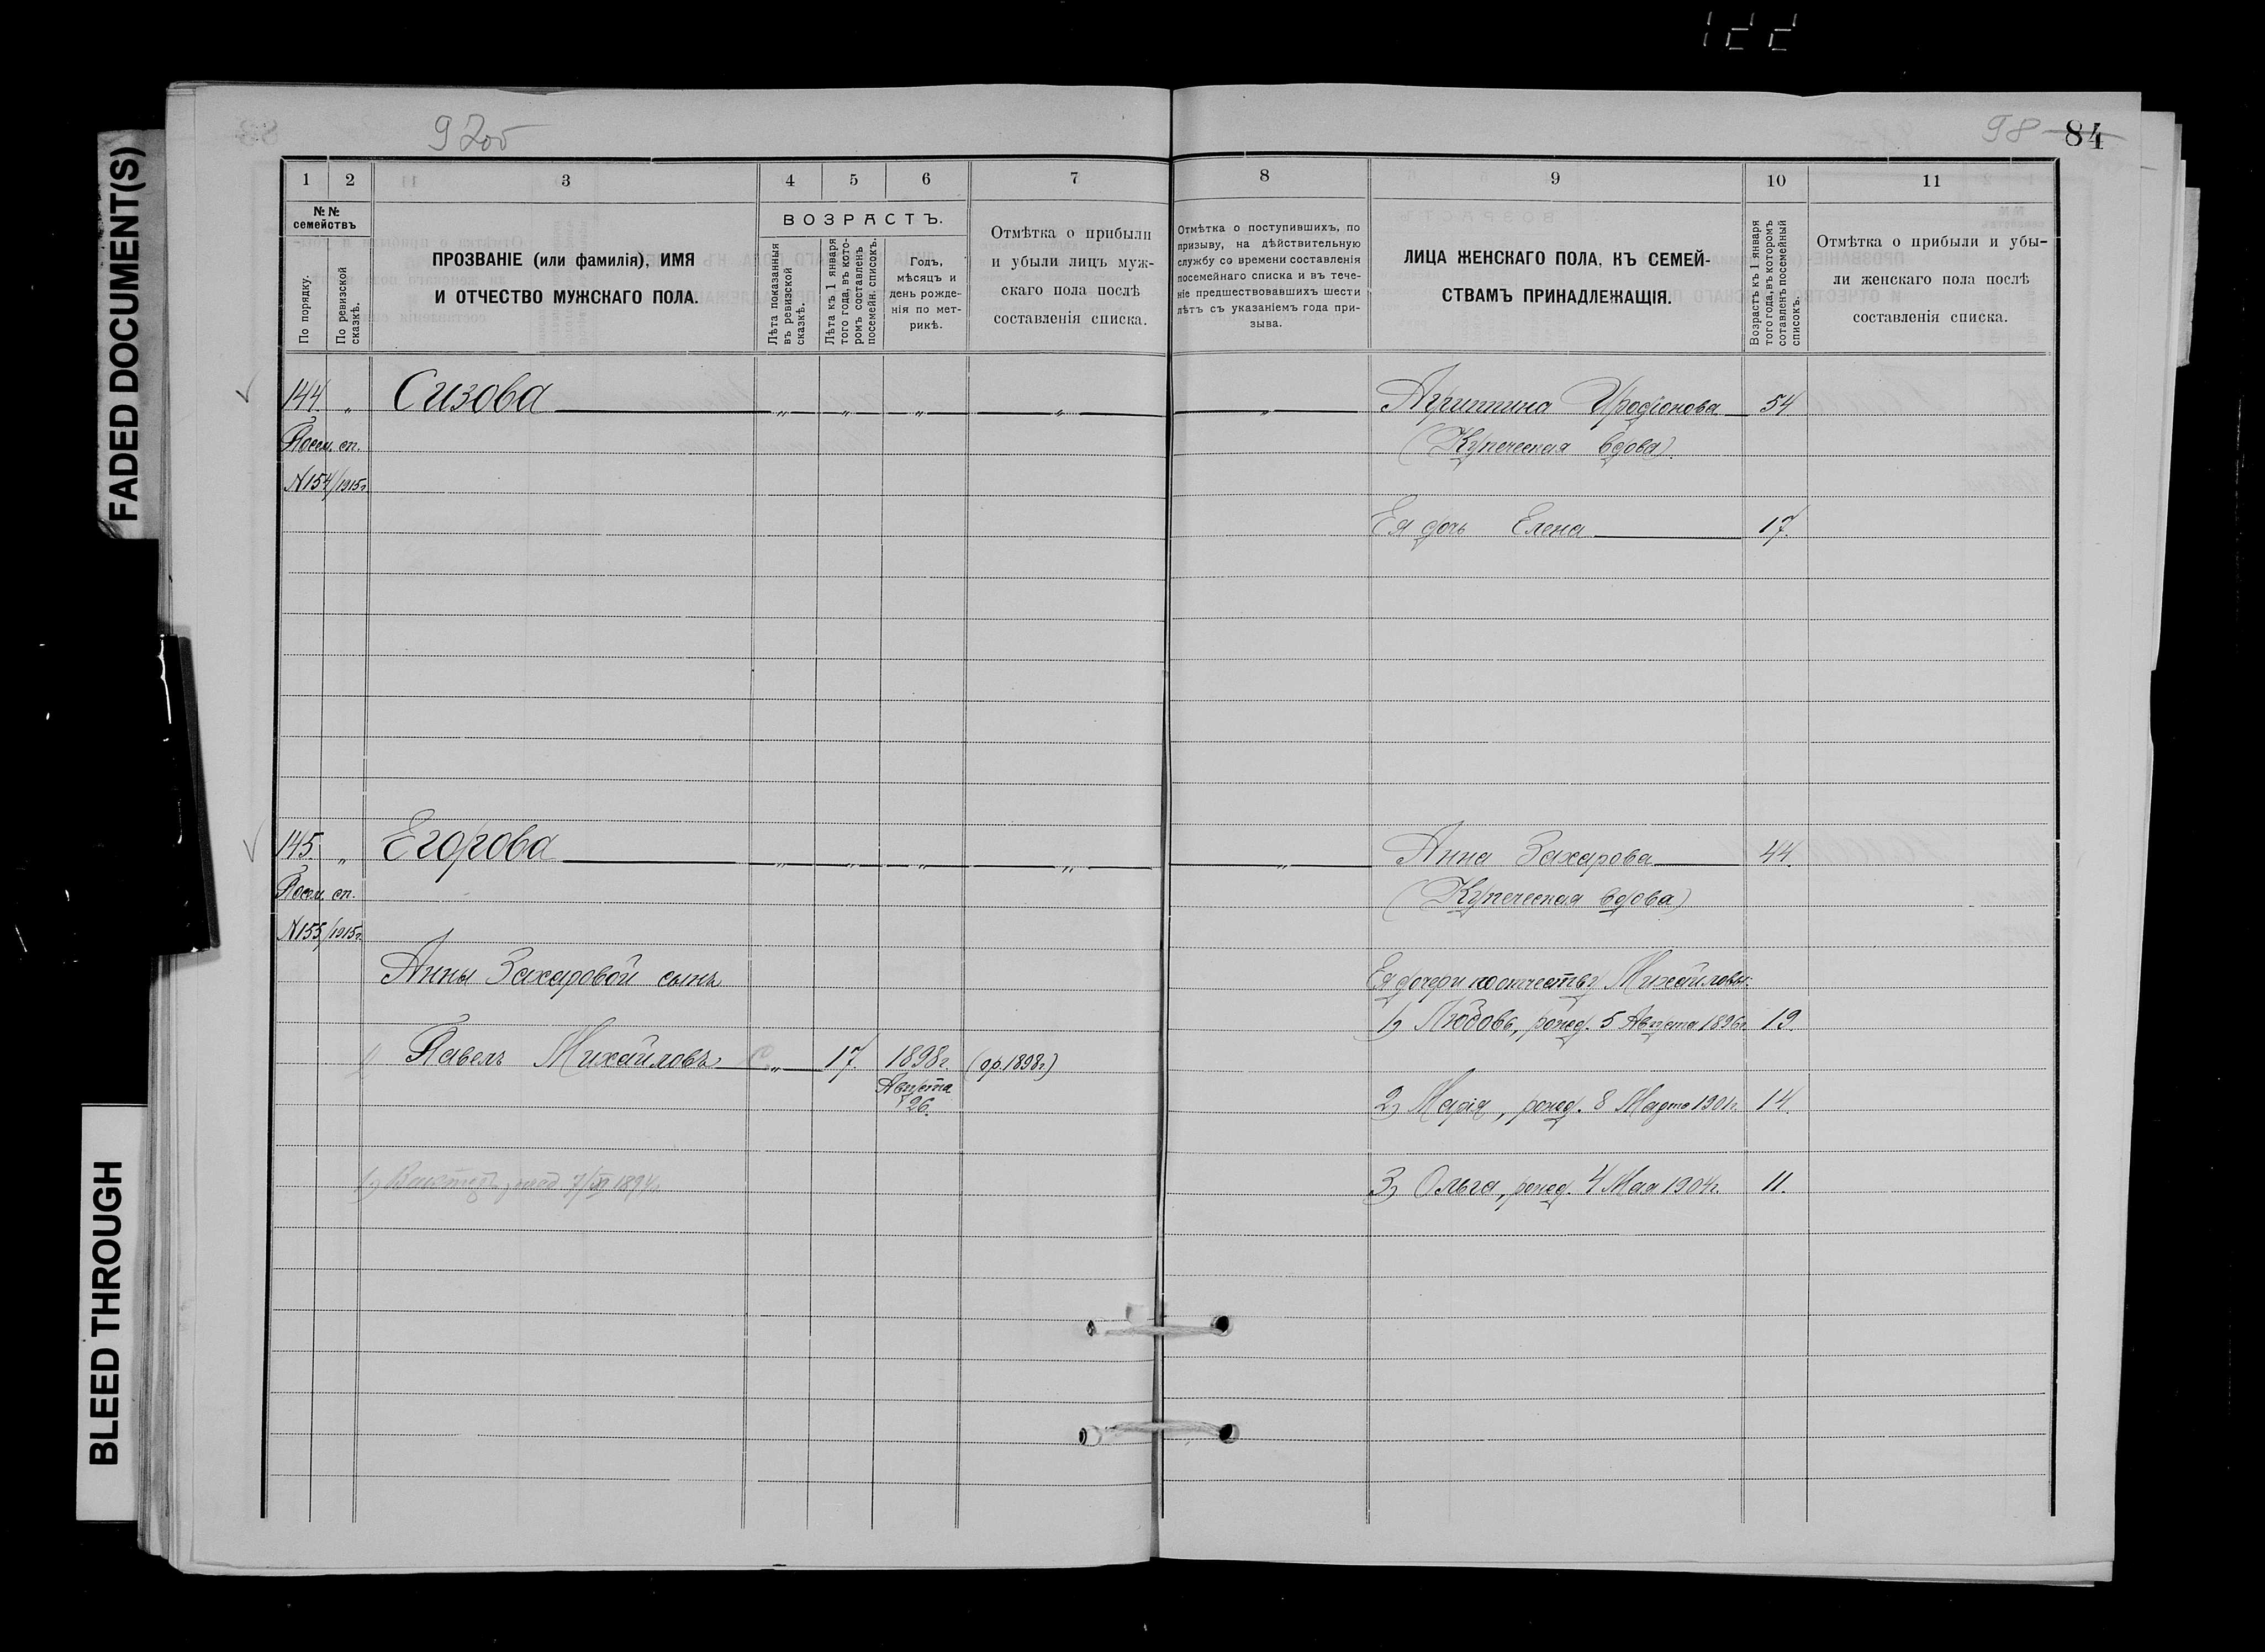 FADED DOCUMENT(S)
BLEED THROUGH
97об
98
84
1 2 3 4 5 6 7
№ №
семействъ
По порядку.
По ревизской сказкѣ.
ПРОЗВАНІЕ (или фамилія), ИМЯ
И ОТЧЕСТВО МУЖСКАГО ПОЛА.
ВОЗРАСТЪ.
Лѣта показанныя
въ ревизской
сказкѣ.
Лѣта къ 1 января
того года, въ кото-
ромъ составленъ
посемейн. списокъ.
Годъ,
мѣсяцъ и
день рожде-
нія по мет-
рикѣ.
Отмѣтка о прибыли
и убыли лицъ муж-
скаго пола послѣ
составленія списка.
144 „ Сизова „ „ „ „
Посем. сп.
№154/1915г.
145. „ Егорова „ „ „ „
Посем. сп.
№155/1915г.
Анны Захаровой сынъ
Павелъ Михайловъ „ 17. 1898г. (ор. 1898г.)
Августа
26.
8 9 10 11
Отмѣтка о поступившихъ, по
призыву, на дѣйствительную
службу со времени составленія
посемейнаго списка и въ тече-
ніе предшествовавшихъ шести
лѣтъ съ указаніемъ года при-
зыва.
ЛИЦА ЖЕНСКАГО ПОЛА, КЪ СЕМЕЙ-
СТВАМЪ ПРИНАДЛЕЖАЩІЯ.
Возрастъ къ 1 января
того года, въ которомъ
сотавленъ посемейный
списокъ.
Отмѣтка о прибыли и убы-
ли женскаго пола послѣ
составленія списка.
„ Агриппина Иродіонова 54
(Купеческая вдова).
Ея дочь Елена 17.
„ Анна Захарова 44.
(Купеческая вдова)
Ея дочери по отчеству Михайловы:
1) Любовь, рожд. 5 Августа 1896г. 19.
2) Марія, рожд. 8 Марта 1901г. 14.
3) Ольга, рожд. 4 Мая 1904г. 11.